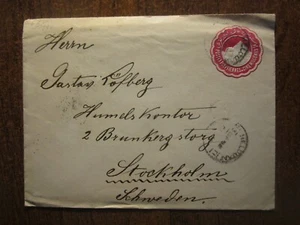 Herrn
Gustav Löfberg
Humdskontor
2 Brunkergstorg
Stockholm
Schweden.